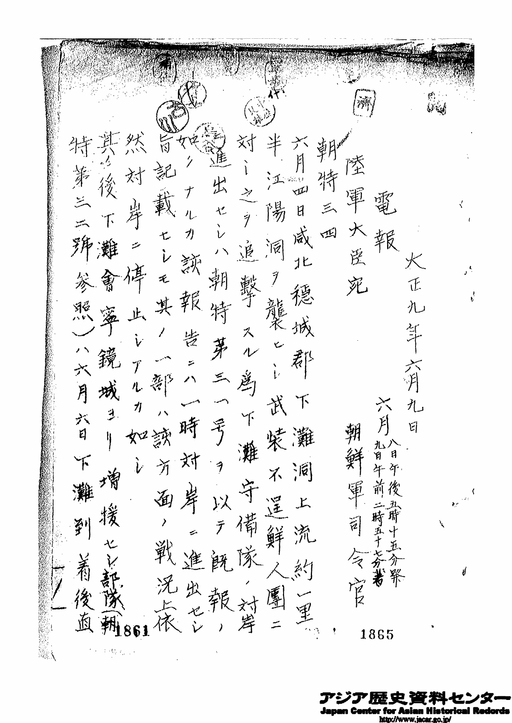 大正九年六月九日
電報
六月
八日午後五時十五分發
九日午前二時五十七分着
陸軍大臣宛
朝鮮軍司令官
朝特三四
六月四日咸北穏城郡下灘洞上流約一里
半江陽洞ヲ襲ヒシ武装不逞鮮人團ニ
対シ之ヲ追撃スル為下灘守備隊ノ対岸
進出セシハ朝特第三一号ヲ以テ既報ノ
如クナルカ該報告ニハ一時対岸ニ進出セシ
旨記載セシモ其ノ一部ハ該方面ノ戦況上依
然対岸ニ停止シアルカ如シ
其ノ後下灘會寧鏡城ヨリ増援セシ部隊(朝
特第三二號参照)ハ六月六日下灘到着後直
1861
1865
アジア歴史資料センター
Japan Center for Asian Historical Records
http://www.jacar.go.jp/